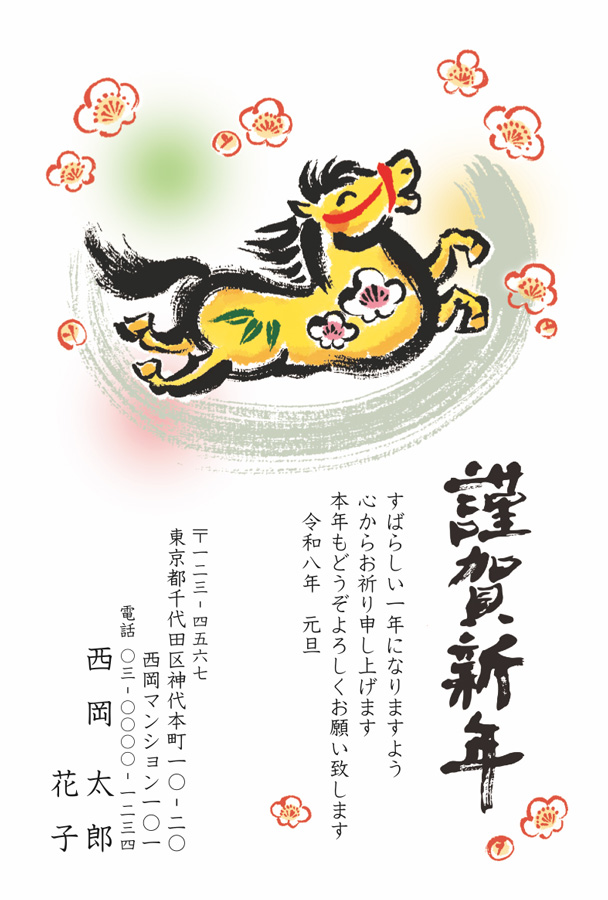 謹賀新年
すばらしい一年になりますよう
心からお祈り申し上げます
本年もどうぞよろしくお願い致します
令和八年　元旦
〒一二三-四五六七
東京都千代田区神代本町一〇-二〇
西岡マンション一〇一
電話　〇三-〇〇〇〇-一二三四
西岡太郎
花子